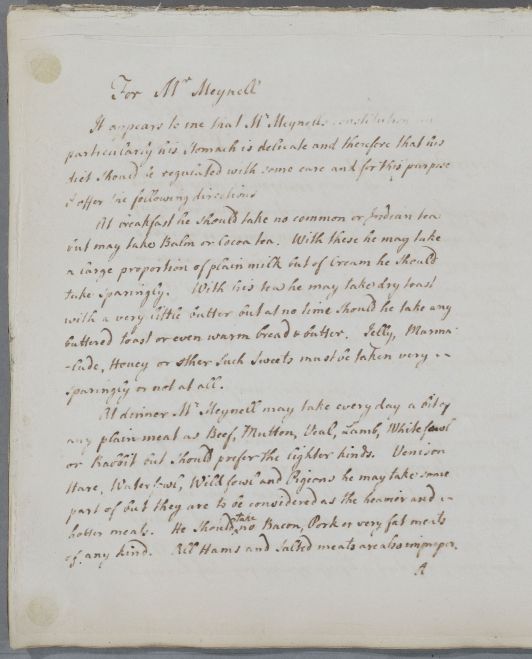 For Mr Meynell
It appears to me that Mr Meynells constitution and
particularly his Stomach is delicate and therefore that his
diet should be regulated with some care and for this purpose
I offer the following directions
At breakfast he should take no common or Indian tea
but may take Balm or Cocoa tea. With these he may take
a large proportion of plain milk but of Cream he should
take sparingly. With his tea he may take dry toast
with a very little butter but at no time should he take any
buttered toast or even warm bread & butter. Jelly, Marma-
-lade, Honey or other such Sweets must be taken very
sparingly or not at all.
At dinner Mr Meynell may take every day a bit of
any plain meat as Beef, Mutton, Veal, Lamb, White fowl
or Rabbit but should prefer the lighter kinds. Venison
Hare, Waterfowl, Wild fowl and Pigeons he may take some
part of but they are to be considered as the heavier and
hotter meats. He should take no Bacon, Pork or very fat meats
of any kind. All Hams and Salted meats are also improper.
A